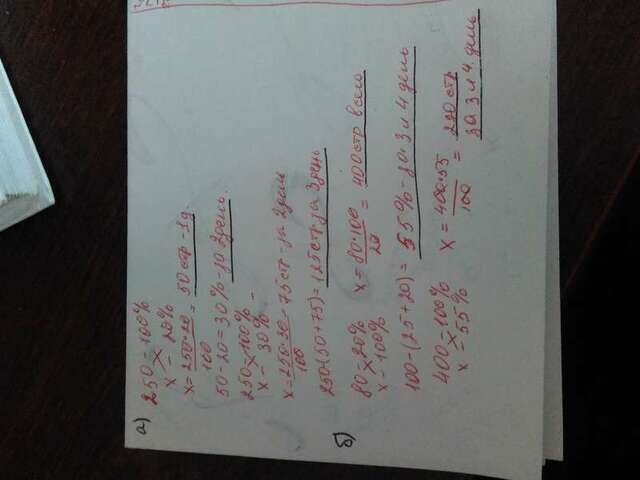 а) 250 - 100%
х - 20%
х = 250·20/100 = 50 стр - 1 д.
50 - 20 = 30% - за 2 день.
250 - 100%
х - 30% -
х = 250·30/100 = 75 стр - за 2 день
250-(50+75) = 125 стр за 3 день
б) 80 - 20%
х - 100%
х = 80·100/20 = 400 стр всего
100 - (25+20) = 55% - за 3 и 4 день
400 - 100%
х - 55%
х = 400·55/100 = 220 стр
за 3 и 4 день